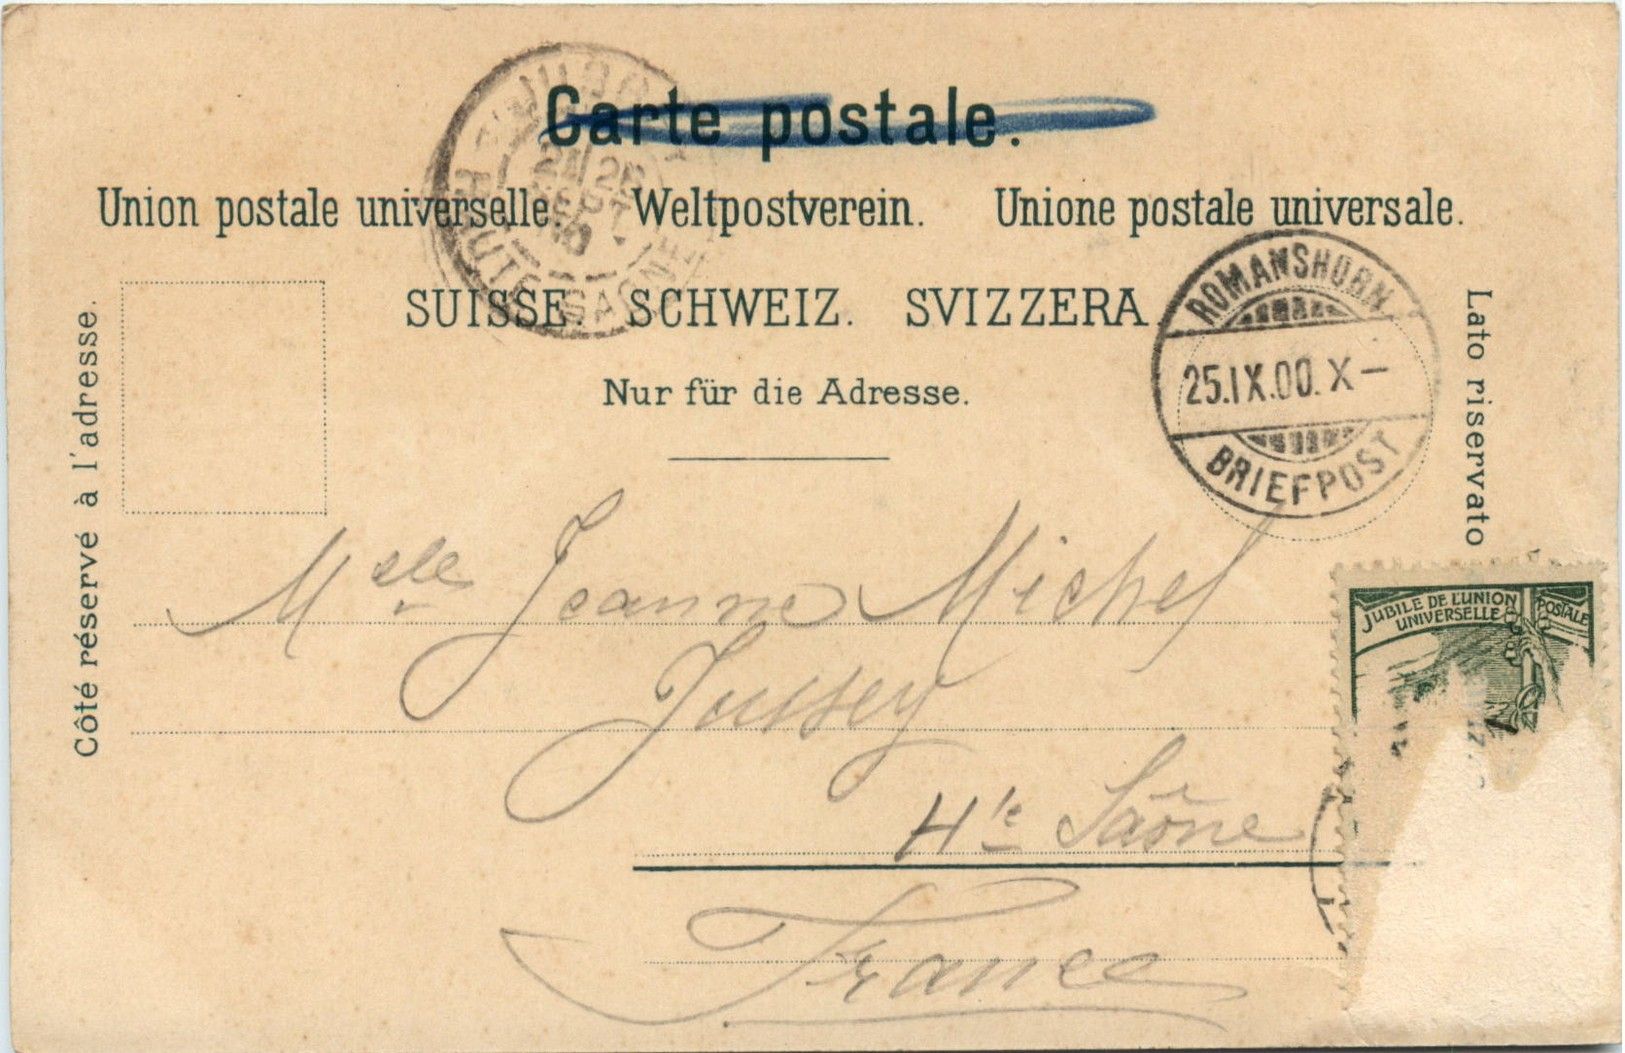 Carte postale.
Union postale universelle. Weltpostverein. Unione postale universale.
SUISSE. SCHWEIZ. SVIZZERA.
Nur für die Adresse.
Côté réservé à l'adresse.
Lato riservato
ROMANSHORN
25.IX.00.X–
BRIEFPOST
HAUTE-SAONE
SEPT
Melle Jeanne Michel
Jussey
Hte Saône
France
JUBILÉ DE L'UNION POSTALE
UNIVERSELLE